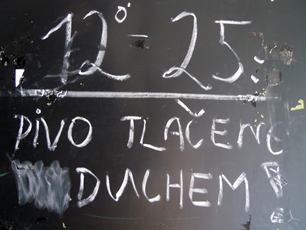 12° - 25:
PIVO TLAČENÉ
DUCHEM!